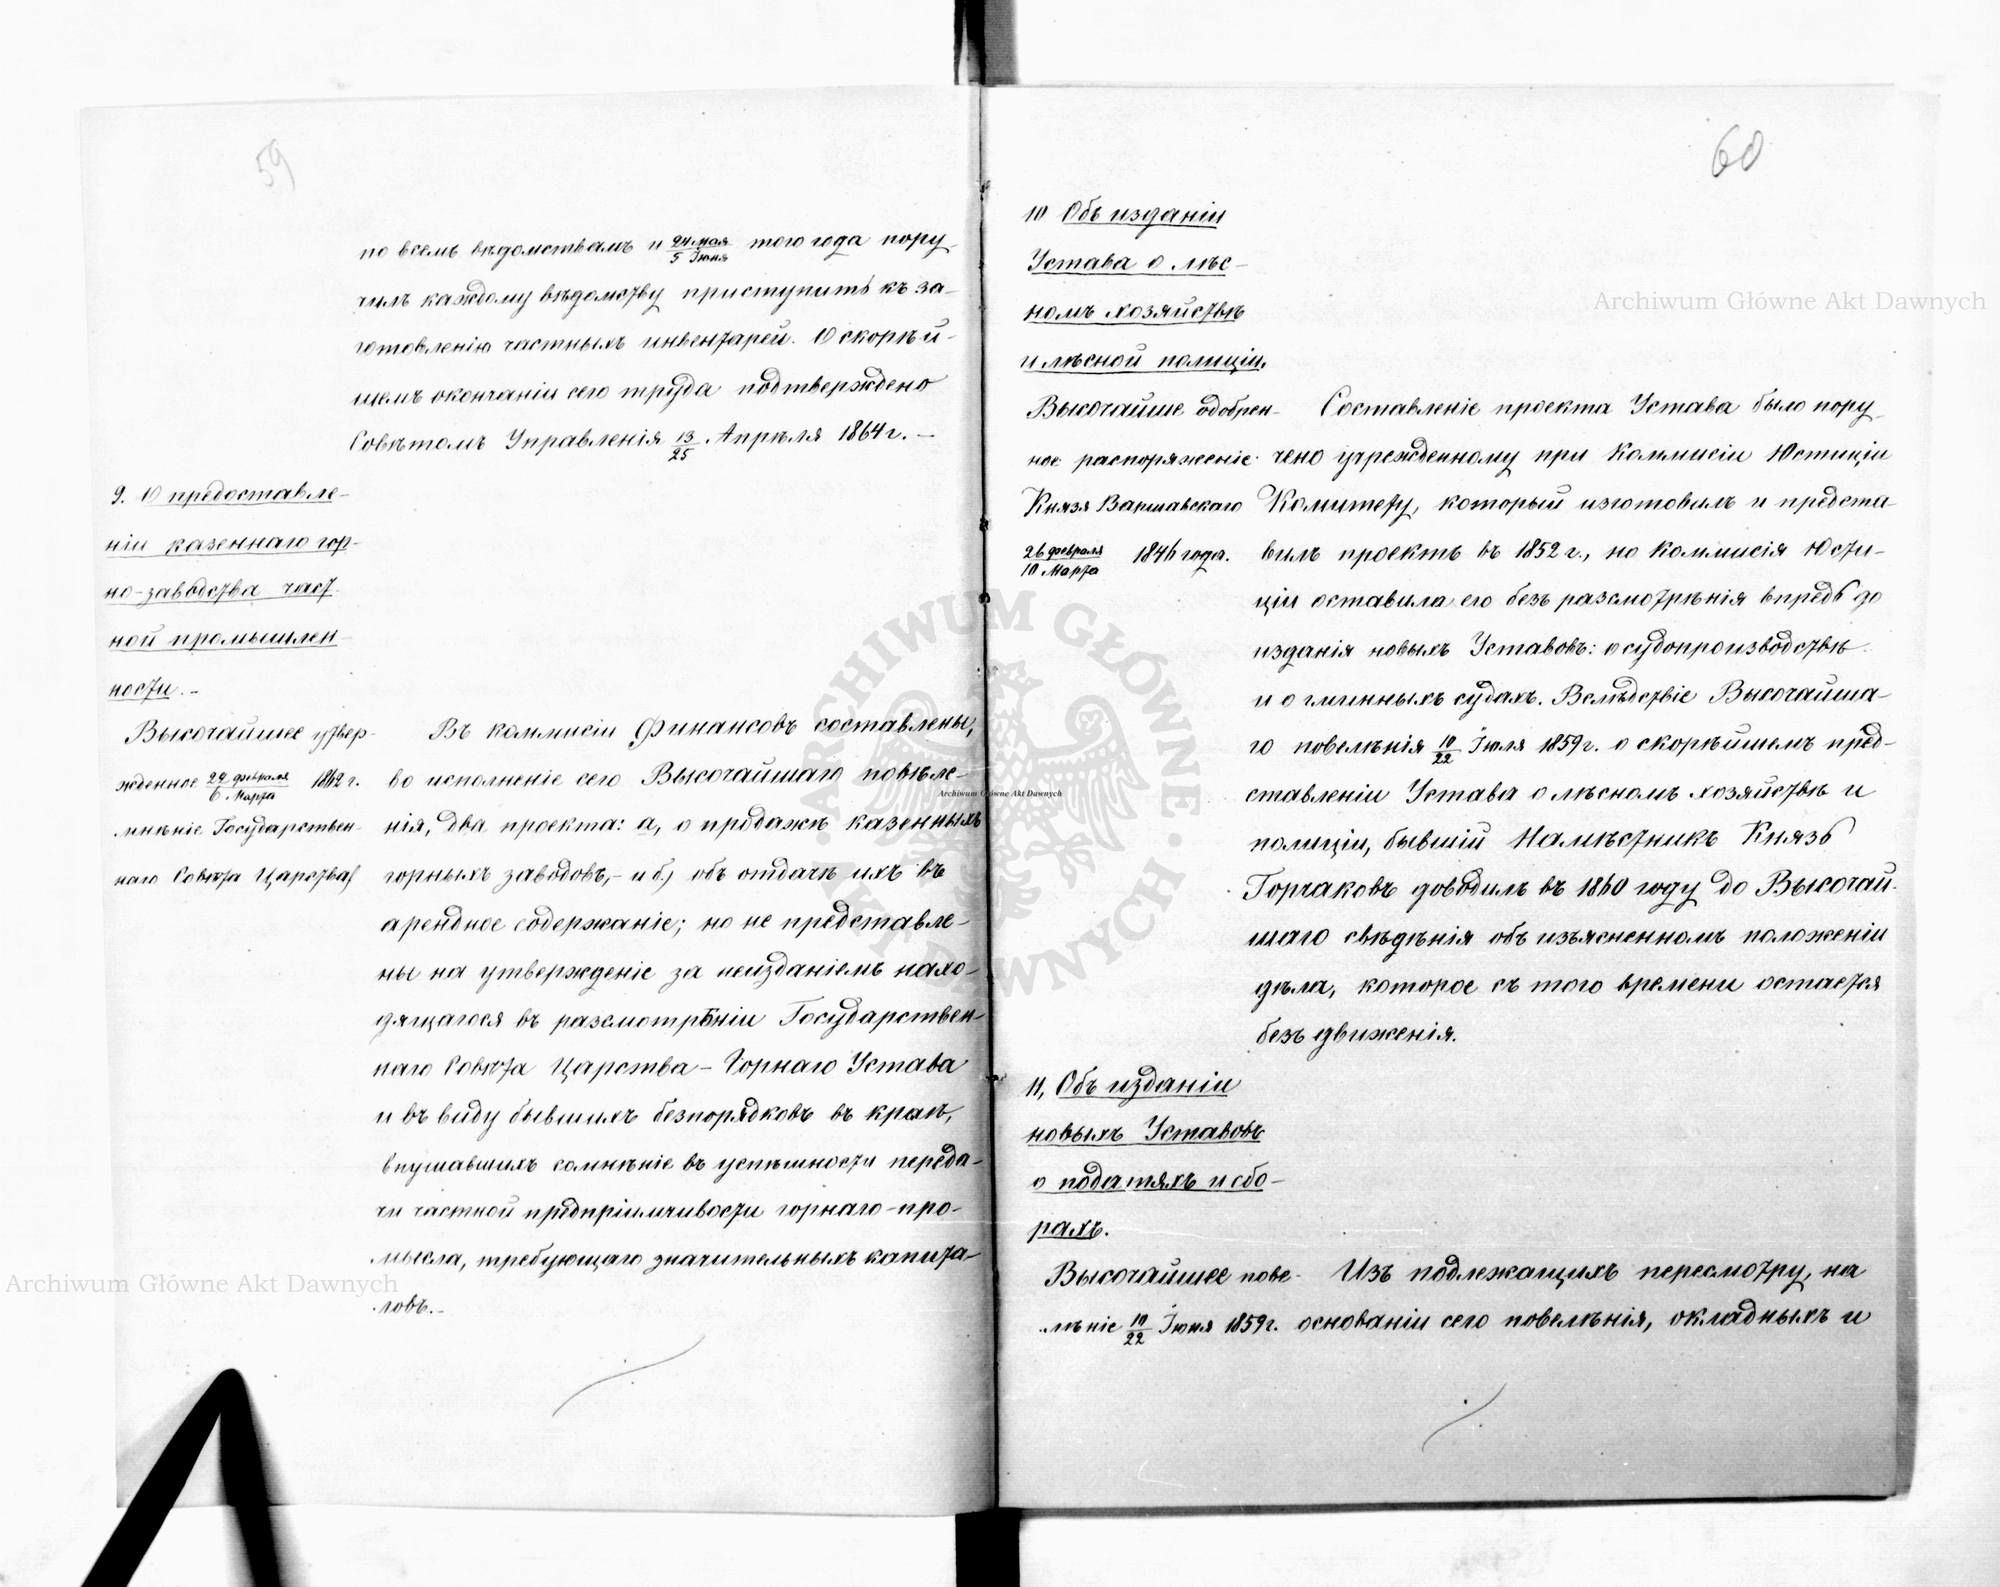 59
по всемъ вѣдомствамъ и 24 мая/5 Іюня того года пору-
чилъ каждому вѣдомству приступить къ за-
готовленію частныхъ инвентарей. О скорѣй-
шемъ окончаніи сего труда подтверждено
Совѣтомъ Управленія 13/25 Апрѣля 1864 г. –
9. О предоставле-
ніи казеннаго гор-
но-заводства част-
ной промышлен-
ности. –
Высочайшее утвер-
жденное 22 февраля/6 Марта 1862 г.
мнѣніе Государствен-
наго Совѣта Царства
Въ коммисіи Финансовъ составлены,
во исполненіе сего Высочайшаго повѣле-
нія, два проекта: а, о продажѣ казенныхъ
горныхъ заводовъ, – и б) объ отдачѣ ихъ въ
арендное содержаніе; но не представле-
ны на утвержденіе за неизданіемъ нахо-
дящагося въ разсмотрѣніи Государствен-
наго Совѣта Царства – Горнаго Устава
и въ виду бывшихъ безпорядковъ въ краѣ,
внушавшихъ сомнѣніе въ успѣшности переда-
чи частной предпріимчивости горнаго-про-
мысла, требующаго значительныхъ капита-
ловъ. –
60
10 Объ изданіи
Устава о лѣс-
номъ хозяйствѣ
и лѣсной полиціи.
Высочайше одобрен-
ное распоряженіе
Князя Варшавскаго
26 февраля/10 Марта 1846 года.
Составленіе проекта Устава было пору-
чено учрежденному при Коммисіи Юстиціи
Комитету, который изготовилъ и предста-
вилъ проектъ въ 1852 г., но Коммисія Юсти-
ціи оставила его безъ разсмотрѣнія впредь до
изданія новыхъ Уставовъ: о судопроизводствѣ
и о гминныхъ судахъ. Вслѣдствіе Высочайша-
го повелѣнія 10/22 Іюля 1859 г. о скорѣйшемъ пред-
ставленіи Устава о лѣсномъ хозяйствѣ и
полиціи, бывшій Намѣстникъ Князь
Горчаковъ доводилъ въ 1860 году до Высочай-
шаго свѣдѣнія объ изъясненномъ положеніи
дѣла, которое съ того времени остается
безъ движенія.
11, Объ изданіи
новыхъ Уставовъ
о податяхъ и сбо-
рахъ.
Высочайшее пове-
лѣніе 10/22 Іюня 1859 г.
Изъ подлежащихъ пересмотру, на
основаніи сего повелѣнія, окладныхъ и
Archiwum Główne Akt Dawnych
Archiwum Główne Akt Dawnych
Archiwum Główne Akt Dawnych
ARCHIWUM GŁÓWNE AKT DAWNYCH